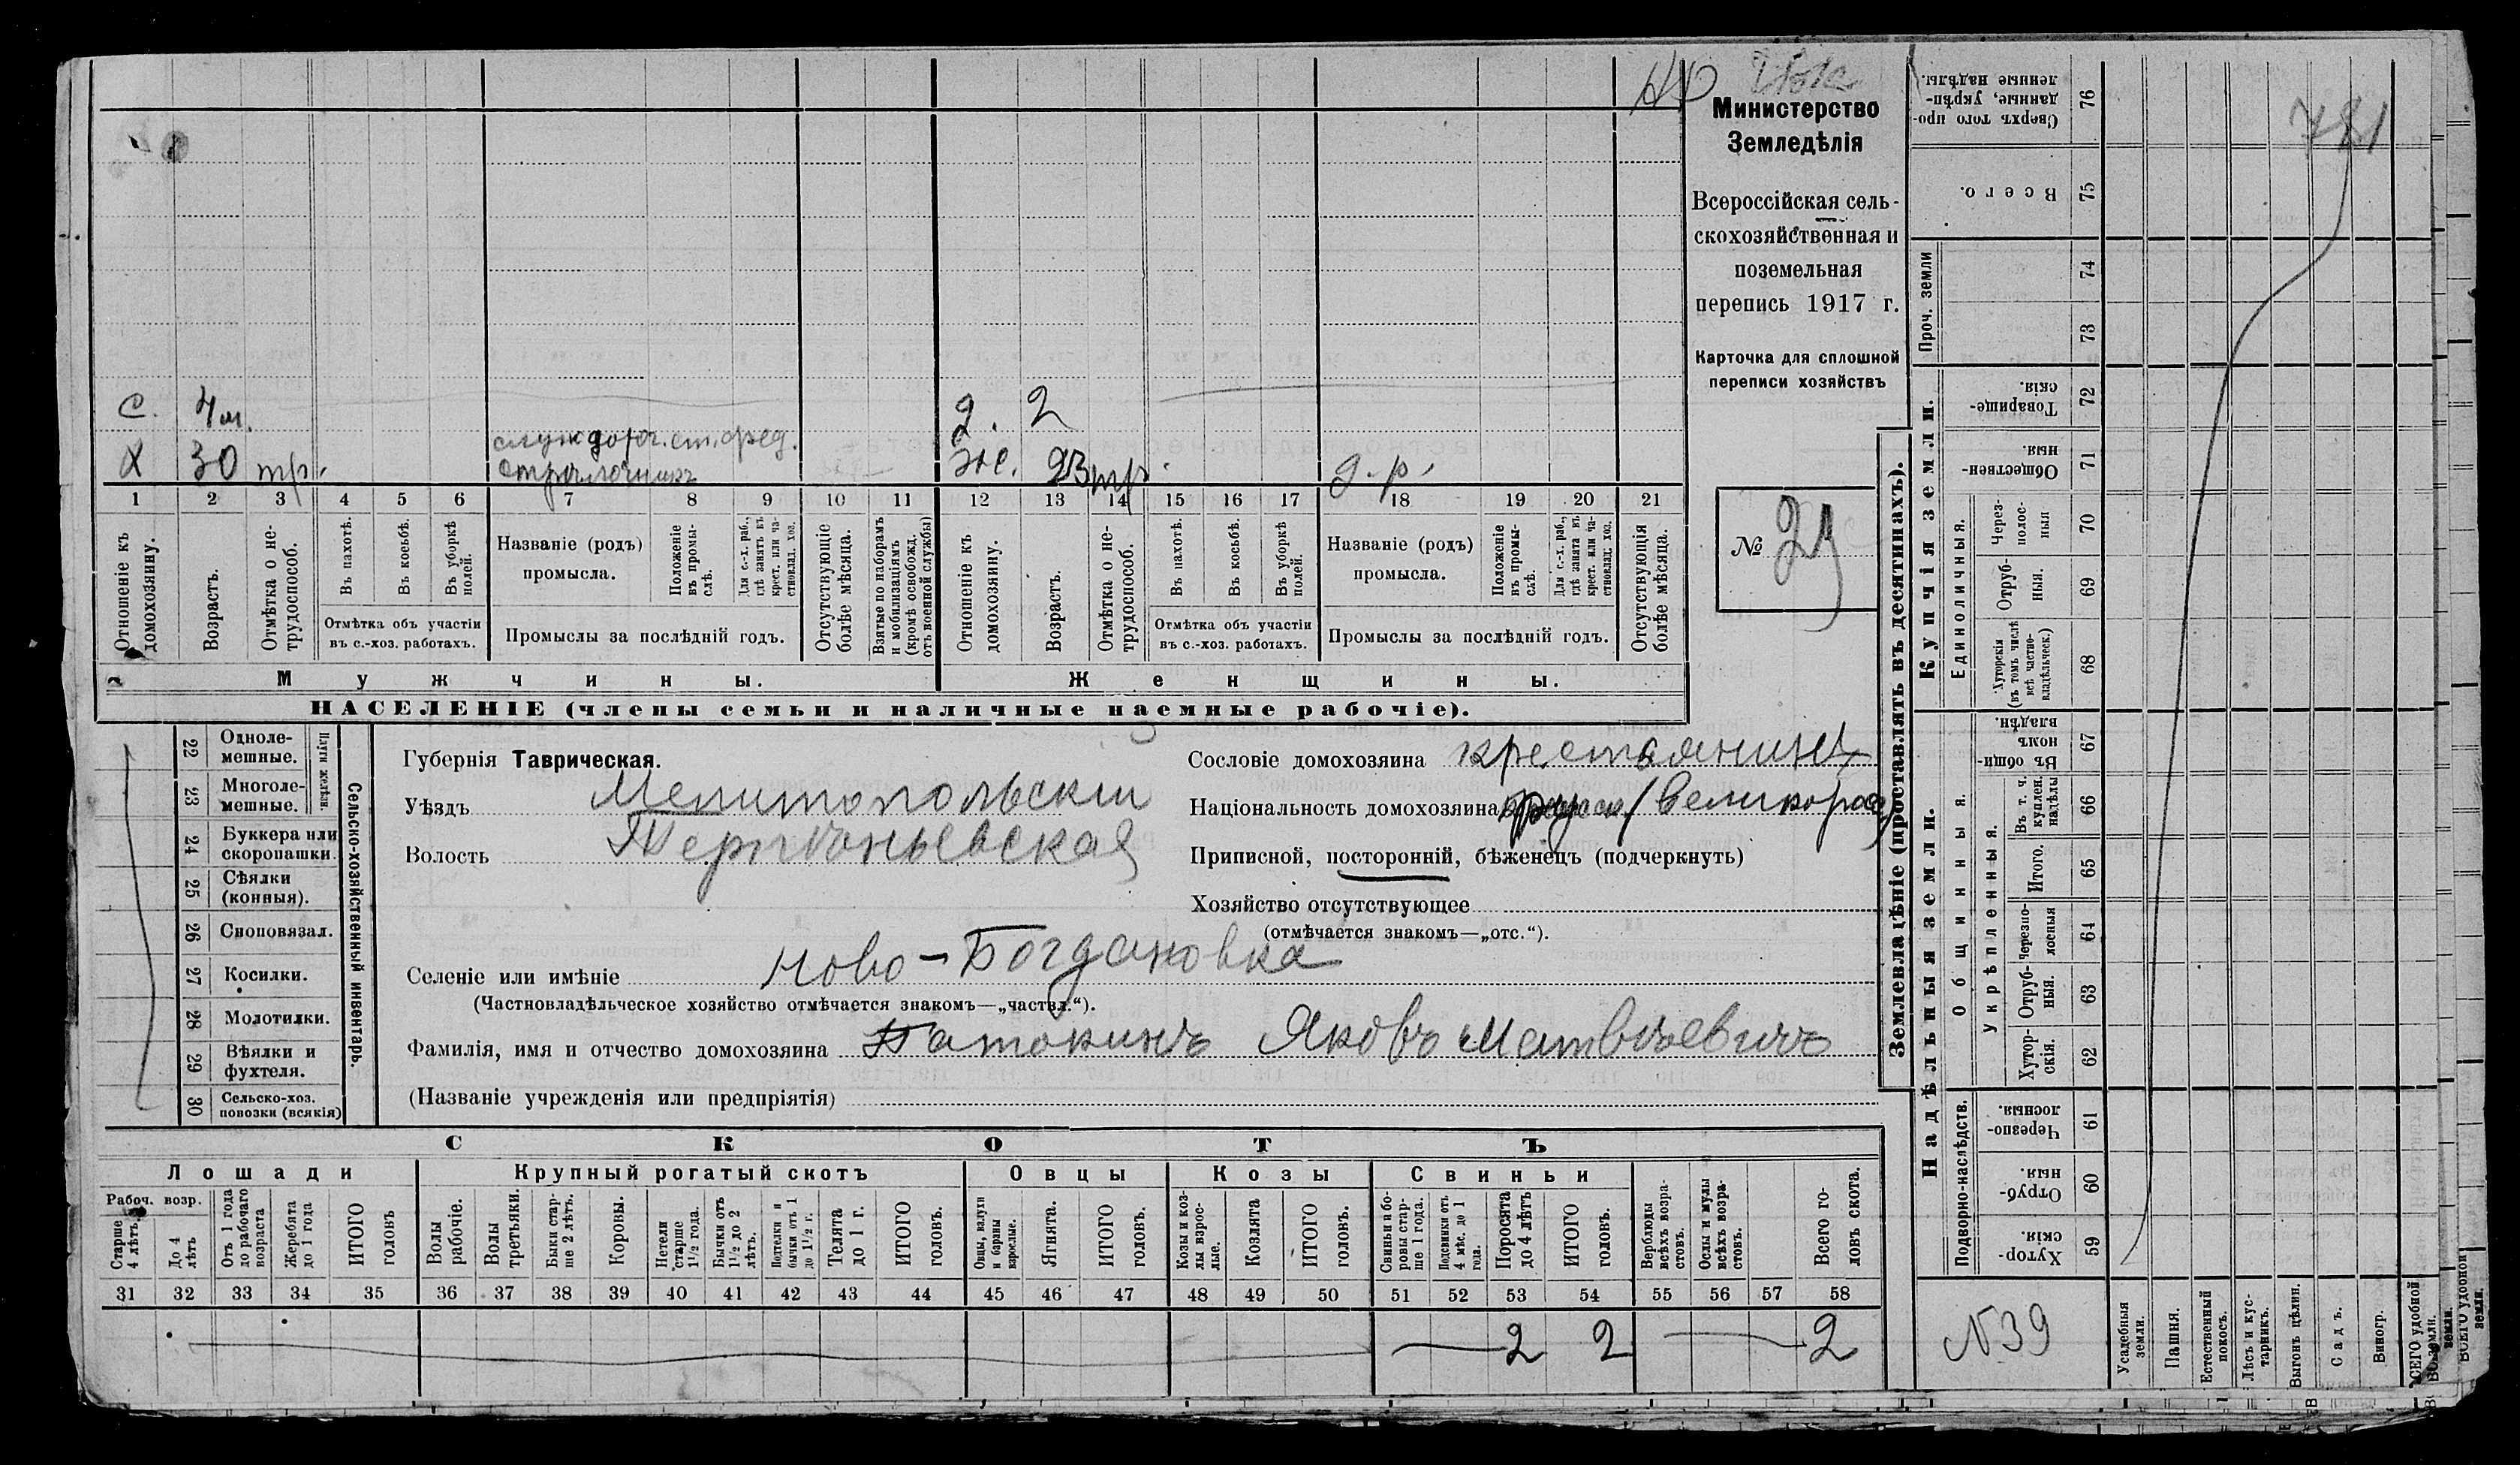 781
Министерство
Земледѣлія
Всероссійская сель-
скохозяйственная и
поземельная
перепись 1917 г.
Карточка для сплошной
переписи хозяйствъ
№ 29
с. 4 м. д. 2
служ. ст. Фед.
X 30 тр. стрѣлочникъ же. 23 тр. д.р.
1 2 3 4 5 6 7 8 9 10 11 12 13 14 15 16 17 18 19 20 21
Отношеніе къ домохозяину.
Возрастъ.
Отмѣтка о не-трудоспособ.
Въ пахотѣ.
Въ косьбѣ.
Въ уборкѣ полей.
Отмѣтка объ участіи
въ с.-хоз. работахъ.
Названіе (родъ)
промысла.
Положеніе въ промы-слѣ.
Для с.-х. раб., гдѣ занятъ въ крест. или ча-стновлад. хоз.
Промыслы за послѣдній годъ.
Отсутствующіе болѣе мѣсяца.
Взятые по наборамъ и мобилизаціямъ (кромѣ освобожд. отъ военной службы)
Отношеніе къ домохозяину.
Возрастъ.
Отмѣтка о не-трудоспособ.
Въ пахотѣ.
Въ косьбѣ.
Въ уборкѣ полей.
Отмѣтка объ участіи
въ с.-хоз. работахъ.
Названіе (родъ)
промысла.
Положеніе въ промы-слѣ.
Для с.-х. раб., гдѣ занята въ крест. или ча-стновлад. хоз.
Промыслы за послѣдній годъ.
Отсутствующія болѣе мѣсяца.
Мужчины. Женщины.
НАСЕЛЕНІЕ (члены семьи и наличные наемные рабочіе).
Сельско-хозяйственный инвентарь.
Плуги желѣзн.
22 Одноле-мешные.
23 Многоле-мешные.
24 Буккера или скоропашки.
25 Сѣялки (конныя).
26 Сноповязал.
27 Косилки.
28 Молотилки.
29 Вѣялки и фухтеля.
30 Сельско-хоз. повозки (всякія)
Губернія Таврическая.
Уѣздъ Мелитопольскій
Волость Терпѣньевская
Сословіе домохозяина крестьянинъ
Національность домохозяина русск. (великоросс)
Приписной, посторонній, бѣженецъ (подчеркнуть)
Хозяйство отсутствующее
(отмѣчается знакомъ—„отс.“).
Селеніе или имѣніе Ново-Богдановка
(Частновладѣльческое хозяйство отмѣчается знакомъ—„частвл.“).
Фамилія, имя и отчество домохозяина Патокинъ Яковъ Матвѣевичъ
(Названіе учрежденія или предпріятія)
СКОТЪ
Лошади Крупный рогатый скотъ Овцы Козы Свиньи
Рабоч. возр.
Старше 4 лѣтъ.
До 4 лѣтъ
Отъ 1 года до рабочаго возраста
Жеребята до 1 года
ИТОГО головъ
Волы рабочіе.
Волы третьяки.
Быки стар-ше 2 лѣтъ.
Коровы.
Нетели старше 1½ года.
Бычки отъ 1½ до 2 лѣтъ.
Подтелки и бычки отъ 1 до 1½ г.
Телята до 1 г.
ИТОГО головъ.
Овцы, валухи и бараны взрослые.
Ягнята.
ИТОГО головъ.
Козы и коз-лы взрос-лые.
Козлята
ИТОГО головъ.
Свиньи и бо-ровы стар-ше 1 года.
Подсвинки отъ 4 мѣс. до 1 года.
Поросята до 4 лѣтъ
ИТОГО головъ.
Верблюды всѣхъ возра-стовъ.
Ослы и мулы всѣхъ возра-стовъ.
Всего го-ловъ скота.
31 32 33 34 35 36 37 38 39 40 41 42 43 44 45 46 47 48 49 50 51 52 53 54 55 56 57 58
2 2 2
Землевладѣніе (проставлять въ десятинахъ).
Сверхъ того про-данные, укрѣп-ленные надѣлы. 76
Всего. 75
Проч. земли 74
73
Купчія земли.
Товарище-скія. 72
Обществен-ныя. 71
Единоличныя.
Через-полос-ныя 70
Отруб-ныя. 69
Хуторскія (въ томъ числѣ всѣ частно-владѣльческ.) 68
Надѣльныя земли.
Общинныя.
Въ общи-номъ владѣн. 67
Укрѣпленныя.
Въ т. ч. куплен. надѣлы 66
Итого. 65
Черезпо-лосныя 64
Отруб-ныя. 63
Хутор-скія. 62
Подворно-наслѣдств.
Черезпо-лосныя. 61
Отруб-ныя. 60
Хутор-скія. 59
N 39
Усадебныя земли.
Пашня.
Естественный покосъ.
Лѣсъ и кус-тарникъ.
Выгонъ цѣлин.
Садъ.
Виногр.
ВСЕГО удобной земли.